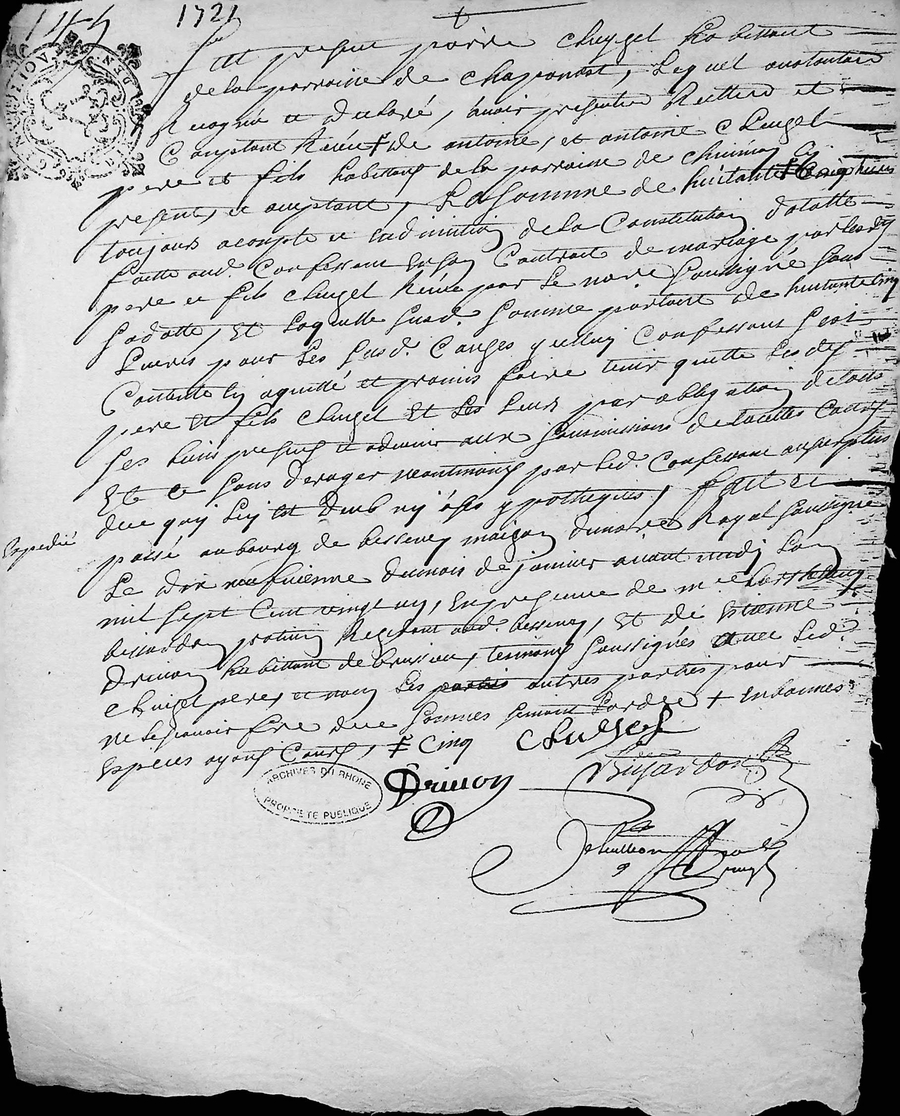 1721
fut present pierre Chuzel habittant
de la parroisse de Chaponost, Lequel
a et declaré, avoir presentem
Comptant Receu de antoine, et antoine Chuzel
pere et fils habittans de la parroisse de
present, et aceptant, La Somme de huitante Cinq livres
toujours acompte et en diminution de la Constitution dotalle
faitte aud. Confessant en son Contrat de mariage par lesd.
pere et fils Chuzel Receu par Le no.re Soussigné Sans
Sa datte, Et Laquelle susd. Somme partant de huitante Cinq
Livres pour Les susd. Causes Confessant S'est
Contenté en aquitté et promis faire tenir quitte Lesd.
pere et fils Chuzel Et Les Leurs par obligation de touts
Ses biens presents et advenir aux Soumissions de touttes Cours
Et Ce Sans deroger neantmoins par Led. Confessant au surplus
que luy est deub ny a ses ypotheques, fait et
passé au bourg de bessenay maison du no.re Royal Soussigné
Le Dix neufvieme du mois de janvier avant midy L'an
mil Sept Cent vingt un, En presence de m.re
bissardon praticien Residant aud. bessenay, Et de Estienne
Drivon habittant de brussieu, temoins Soussignés avec Led.
Chuzel pere, et non Les parties autres parties pour
ne Sçavoir de Ce Sommés + En bonnes
Especes ayant Cours, ⨍ Cinq
Expedié
Chuzel
Drivon
Bissardon
ARCHIVES DU RHONE
PROPRIETE PUBLIQUE